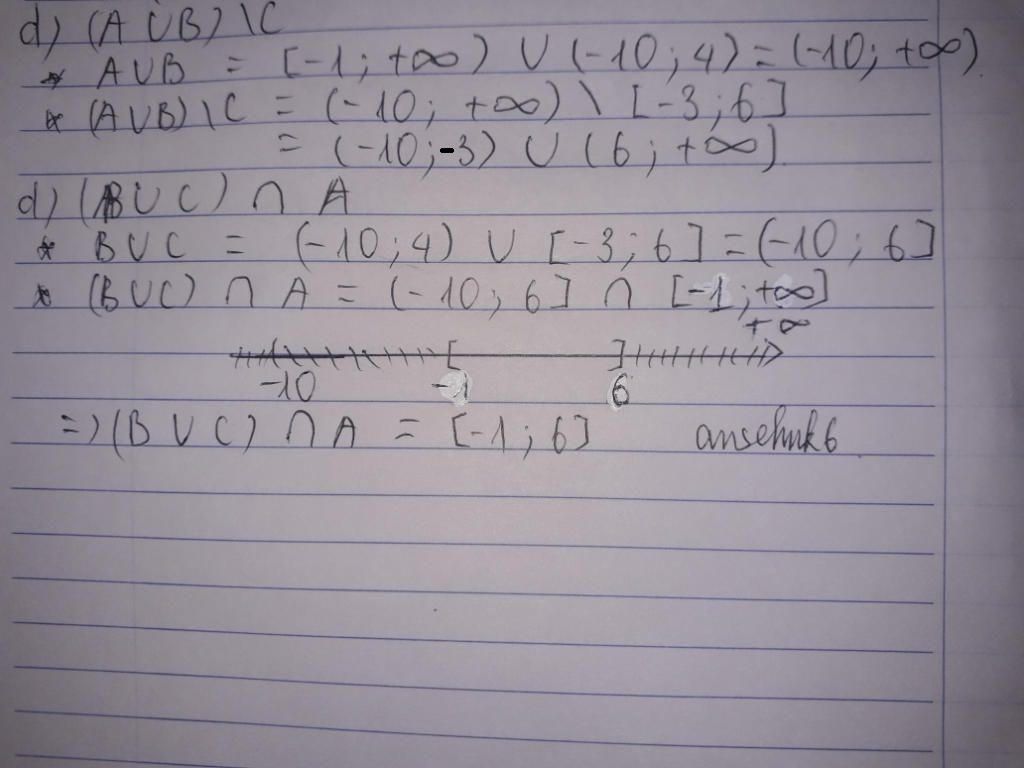 d) (A ∪ B) \ C
* A ∪ B = [-1 ; +∞) ∪ (-10 ; 4) = (-10 ; +∞).
* (A ∪ B) \ C = (-10 ; +∞) \ [-3 ; 6]
= (-10 ; -3) ∪ (6 ; +∞).
d) (B ∪ C) ∩ A
* B ∪ C = (-10 ; 4) ∪ [-3 ; 6] = (-10 ; 6]
* (B ∪ C) ∩ A = (-10 ; 6] ∩ [-1 ; +∞)
+∞
-10 -1 6
=> (B ∪ C) ∩ A = [-1 ; 6] ansehnk6